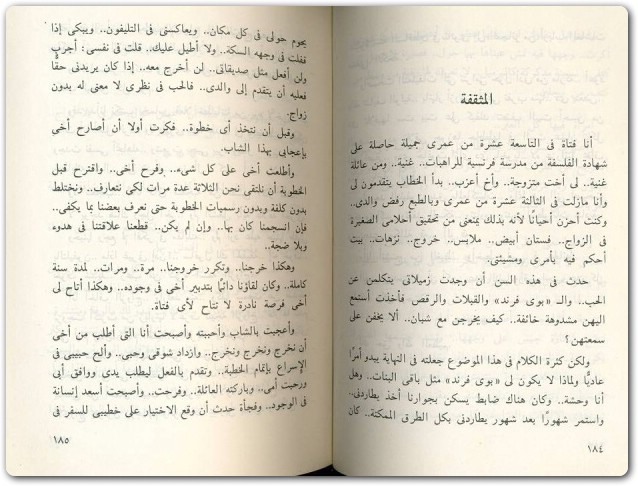 المثقفة
أنا فتاة فى التاسعة عشرة من عمرى جميلة حاصلة على
شهادة الفلسفة من مدرسة فرنسية للراهبات. غنية.. ومن عائلة
غنية.. لى أخت متزوجة.. وأخ أعزب.. بدأ الخطاب يتقدمون لى
وأنا مازلت فى الثالثة عشرة من عمرى وبالطبع رفض والدى..
وكنت أحزن أحيانًا لأنه بذلك يمنعنى من تحقيق أحلامى الصغيرة
فى الزواج.. فستان أبيض.. ملابس.. خروج.. نزهات.. بيت
أحكم فيه بأمرى ومشيئتى.
حدث فى هذه السن أن وجدت زميلاتى يتكلمن عن
الحب.. والـ «بوى فرند» والقبلات والرقص فأخذت أستمع
اليهن مشدوهة خائفة.. كيف يخرجن مع شبان.. ألا يخفن على
سمعتهن؟
ولكن كثرة الكلام فى هذا الموضوع جعلته فى النهاية يبدو أمرًا
عاديًّا ولماذا لا يكون لى «بوى فرند» مثل باقى البنات.. وهل
أنا وحشة.. وكان هناك ضابط يسكن بجوارنا أخذ يطاردنى..
واستمر شهورًا بعد شهور يطاردنى بكل الطرق الممكنة.. كان
١٨٤
يحوم حولى فى كل مكان.. ويعاكسنى فى التليفون.. ويبكى إذا
قفلت فى وجهه السكة.. ولا أطيل عليك.. قلت فى نفسى: أجرب
ولن أفعل مثل صديقاتى.. لن أخرج معه.. إذا كان يريدنى حقًّا
فعليه أن يتقدم إلى والدى.. فالحب فى نظرى لا معنى له بدون
زواج.
وقبل أن نتخذ أى خطوة.. فكرت أولا أن أصارح أخى
بإعجابى بهذا الشاب.
وأطلعت أخى على كل شىء.. وفرح أخى.. واقترح قبل
الخطوبة أن نلتقى نحن الثلاثة عدة مرات لكى نتعارف.. ونختلط
بدون كلفة وبدون رسميات الخطوبة حتى نعرف بعضنا بما يكفى..
فإن انسجمنا كان بها.. وإن لم يكن.. قطعنا علاقتنا فى هدوء
وبلا ضجة..
وهكذا خرجنا.. وتكرر خروجنا.. مرة.. ومرات.. لمدة سنة
كاملة.. وكان لقاؤنا دائمًا بتدبير أخى فى وجوده.. وهكذا أتاح لى
أخى فرصة نادرة لا تتاح لأى فتاة.
وأعجبت بالشاب وأحببته وأصبحت أنا التى أطلب من أخى
أن نخرج ونخرج ونخرج.. وازداد شوقى وحبى.. وألح حبيبى فى
الإسراع بإتمام الخطبة.. وتقدم بالفعل ليطلب يدى ووافق أبى
ورحبت أمى.. وباركته العائلة.. وفرحت.. وأصبحت أسعد إنسانة
فى الوجود.. وفجأة حدث أن وقع الاختيار على خطيبى للسفر فى
١٨٥